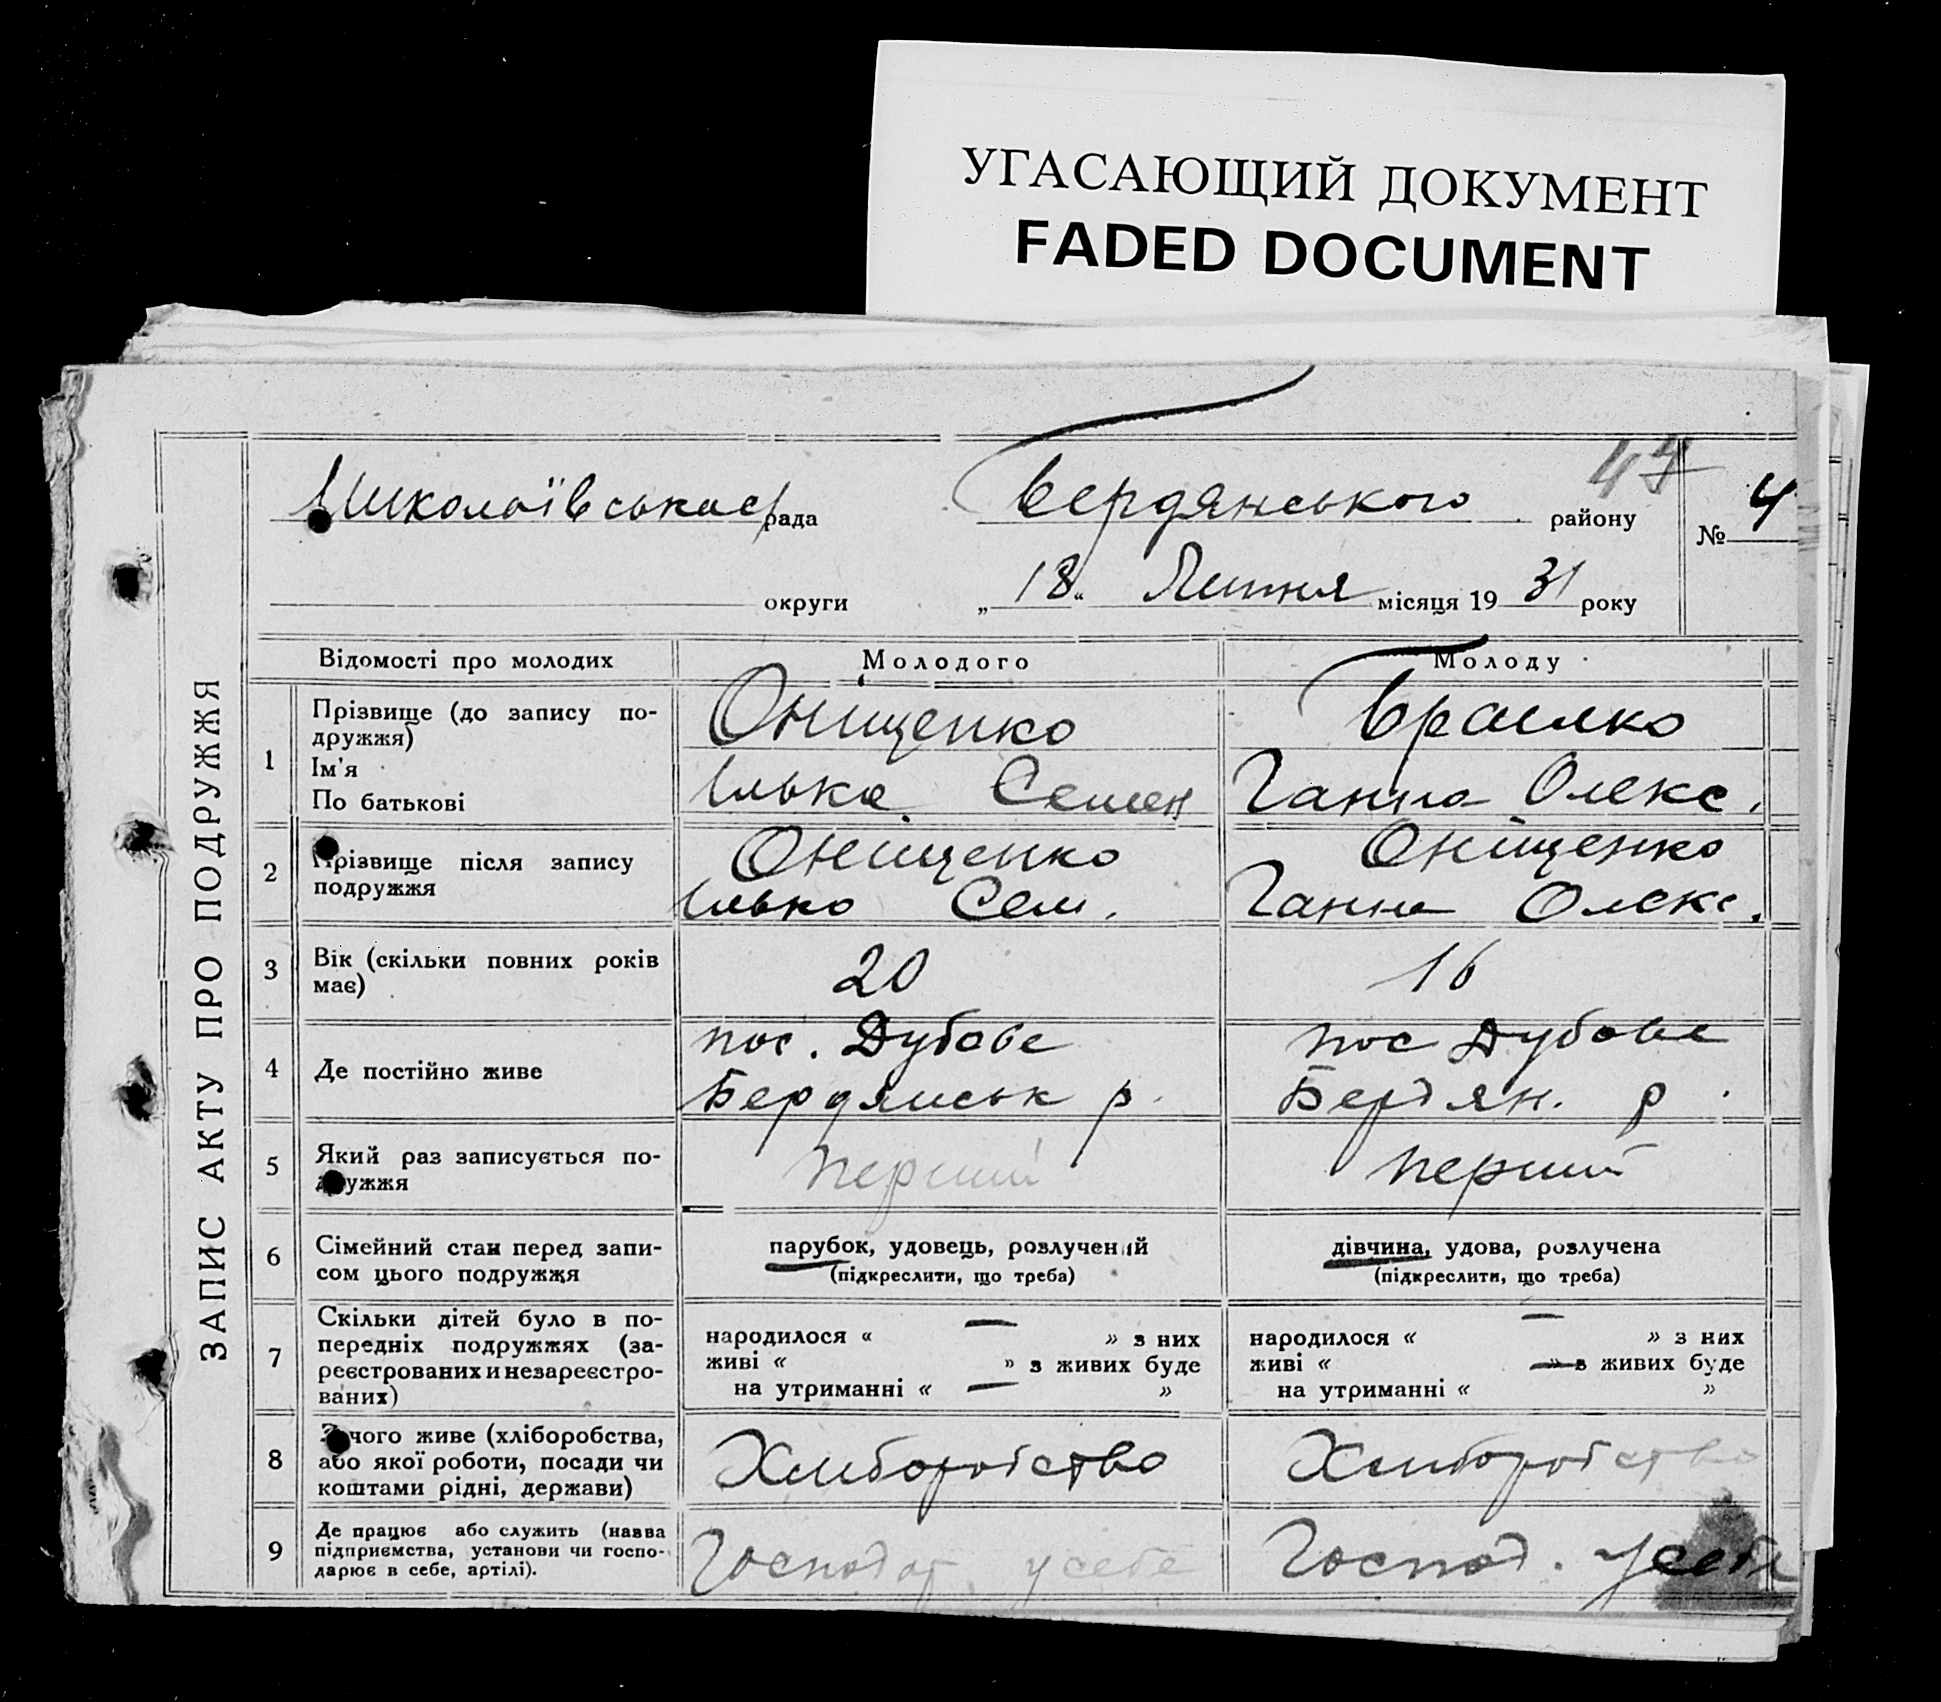 УГАСАЮЩИЙ ДОКУМЕНТ
FADED DOCUMENT
ЗАПИС АКТУ ПРО ПОДРУЖЖЯ
Миколаївська с/рада Бердянського району № 4
округи „18“ Лютня місяця 1931 року
Відомості про молодих Молодого Молоду
1 Прізвище (до запису по-
дружжя) Оніщенко Браілко
Ім'я
По батькові Ілько Семен Ганна Олекс.
2 Прізвище після запису
подружжя Оніщенко Оніщенко
Ілько Сем. Ганна Олекс.
3 Вік (скільки повних років
має) 20 16
4 Де постійно живе пос. Дубове пос Дубове
Бердянськ р. Бердян. р.
5 Який раз записується по-
дружжя перший перший
6 Сімейний стан перед запи-
сом цього подружжя парубок, удовець, розлучений дівчина, удова, розлучена
(підкреслити, що треба) (підкреслити, що треба)
7 Скільки дітей було в по-
передніх подружжях (за-
реєстрованих и незареєстро-
ваних) народилося « — » з них народилося « — » з них
живі « » з живих буде живі « — » з живих буде
на утриманні « — » на утриманні « »
8 З чого живе (хліборобства,
або якої роботи, посади чи
коштами рідні, держави) Хлиборобство Хлиборобство
9 Де працює або служить (назва
підприємства, установи чи госпо-
дарює в себе, артілі). Господар у себе Господ. у себе